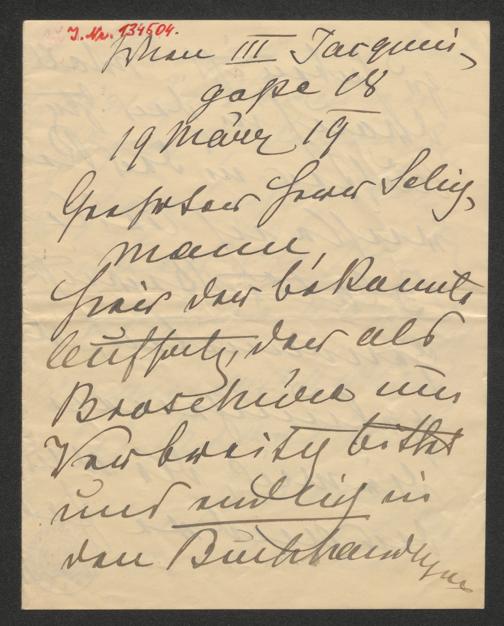 J. Nr. 134504.
Wien III Jacquin-
gaße 18
19 März 19
Geehrter Herr Selig-
mann,
hier der bekannte
Aufsatz, der als
Broschüre um
Verbreitg bittet
und endlich in
den Buchhandlgen